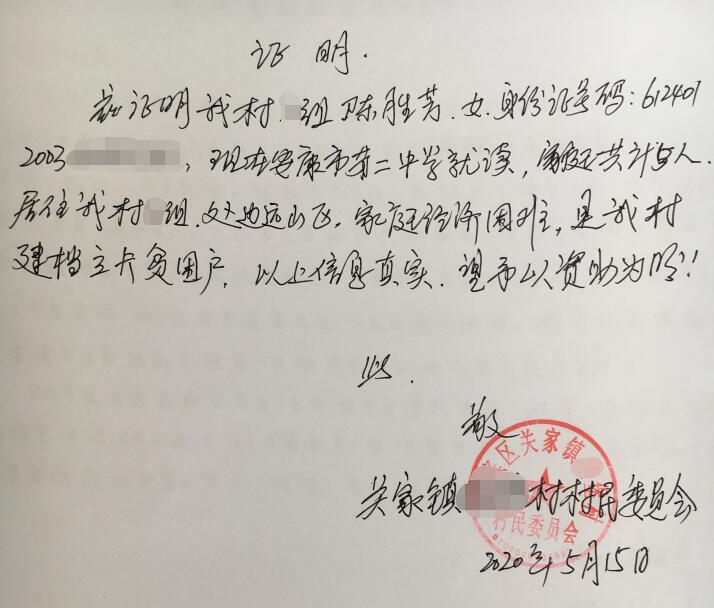 证明.
兹证明我村 组陈胜芳.女.身份证号码:612401
2003 ,现在安康市第二中学就读,家庭共计5人.
居住我村 组.处边远山区.家庭经济困难,是我村
建档立卡贫困户.以上信息真实.望予以资助为盼!!
此.
敬
关家镇 村村民委员会
区关家镇 村
村民委员会
2020年5月15日